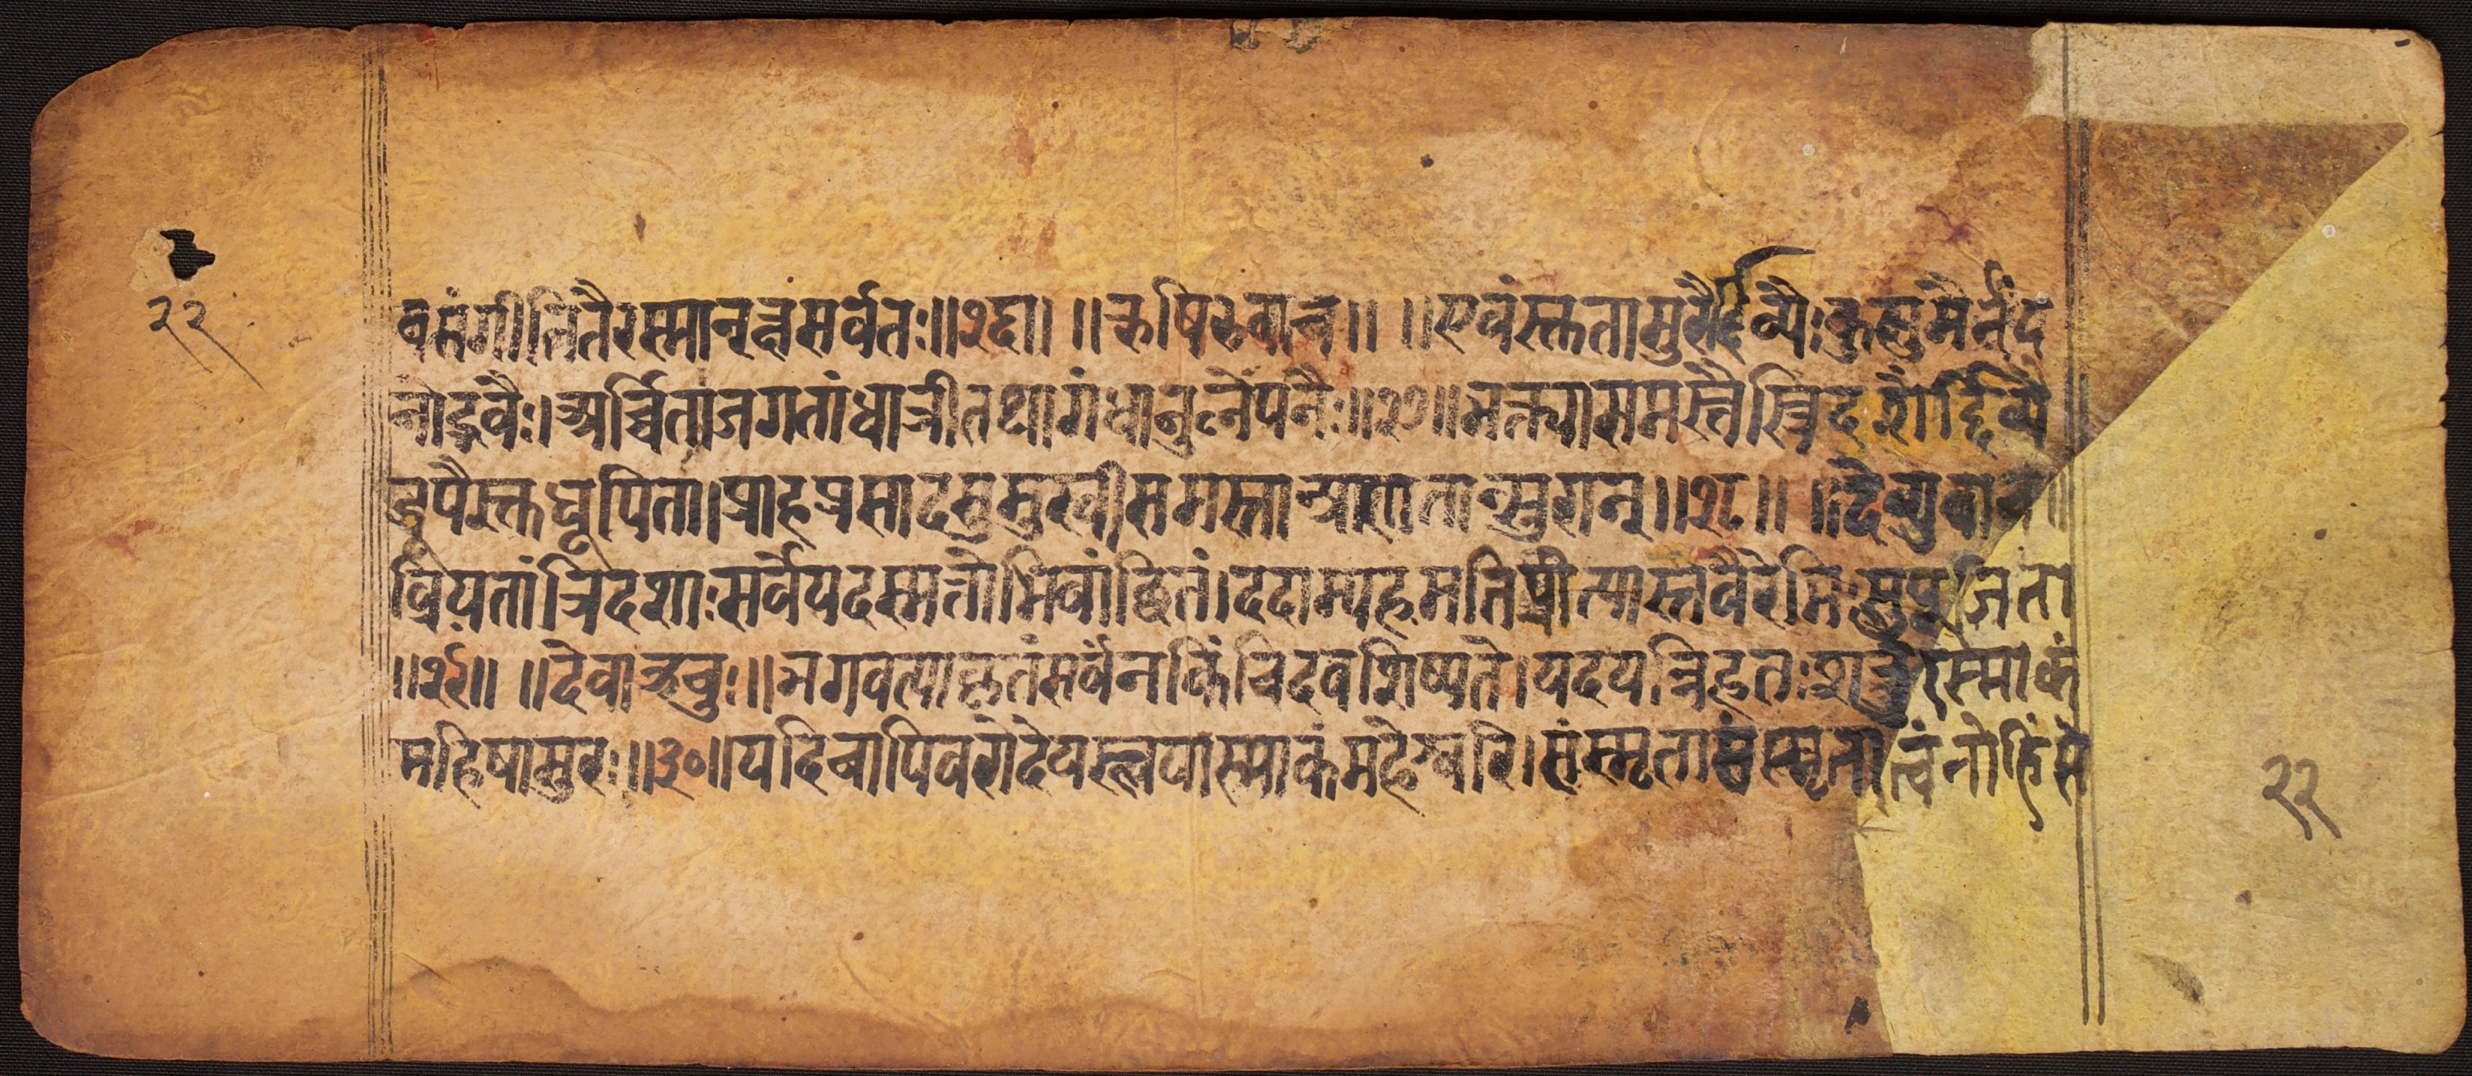 वसंगीनितैरस्मान्रक्षसर्वतः॥२६॥ ॥ऋषिरुवाच॥ ॥एवंस्तुतासुरैर्दिव्यैःकुसुमैर्नंद
नोद्भवैः।अर्च्चिताजगतांधात्रीतथागंधानुलेपनैः॥२७॥भक्त्यासमस्तैस्त्रिदशैर्द्दिव्यै
र्धूपैस्तुधूपिता।प्राहप्रसादसुमुखीसमस्तान्प्रणतान्सुरान्॥२८॥ ॥देव्युवाच॥
व्रियतांत्रिदशाःसर्वेयदस्मत्तोभिवांछितं।ददाम्यहमतिप्रीत्यास्तवैरेभिःसुपूजिता
॥२९॥ ॥देवाऊचुः॥भगवत्याकृतंसर्वंनकिंचिदवशिष्यते।यदयन्निहतःशत्रुरस्माकं
महिषासुरः॥३०॥यदिचापिवरोदेयस्त्वयास्माकंमहेश्वरि।संस्मृतासंस्मृतात्वंनोहिंसे
२२
२२